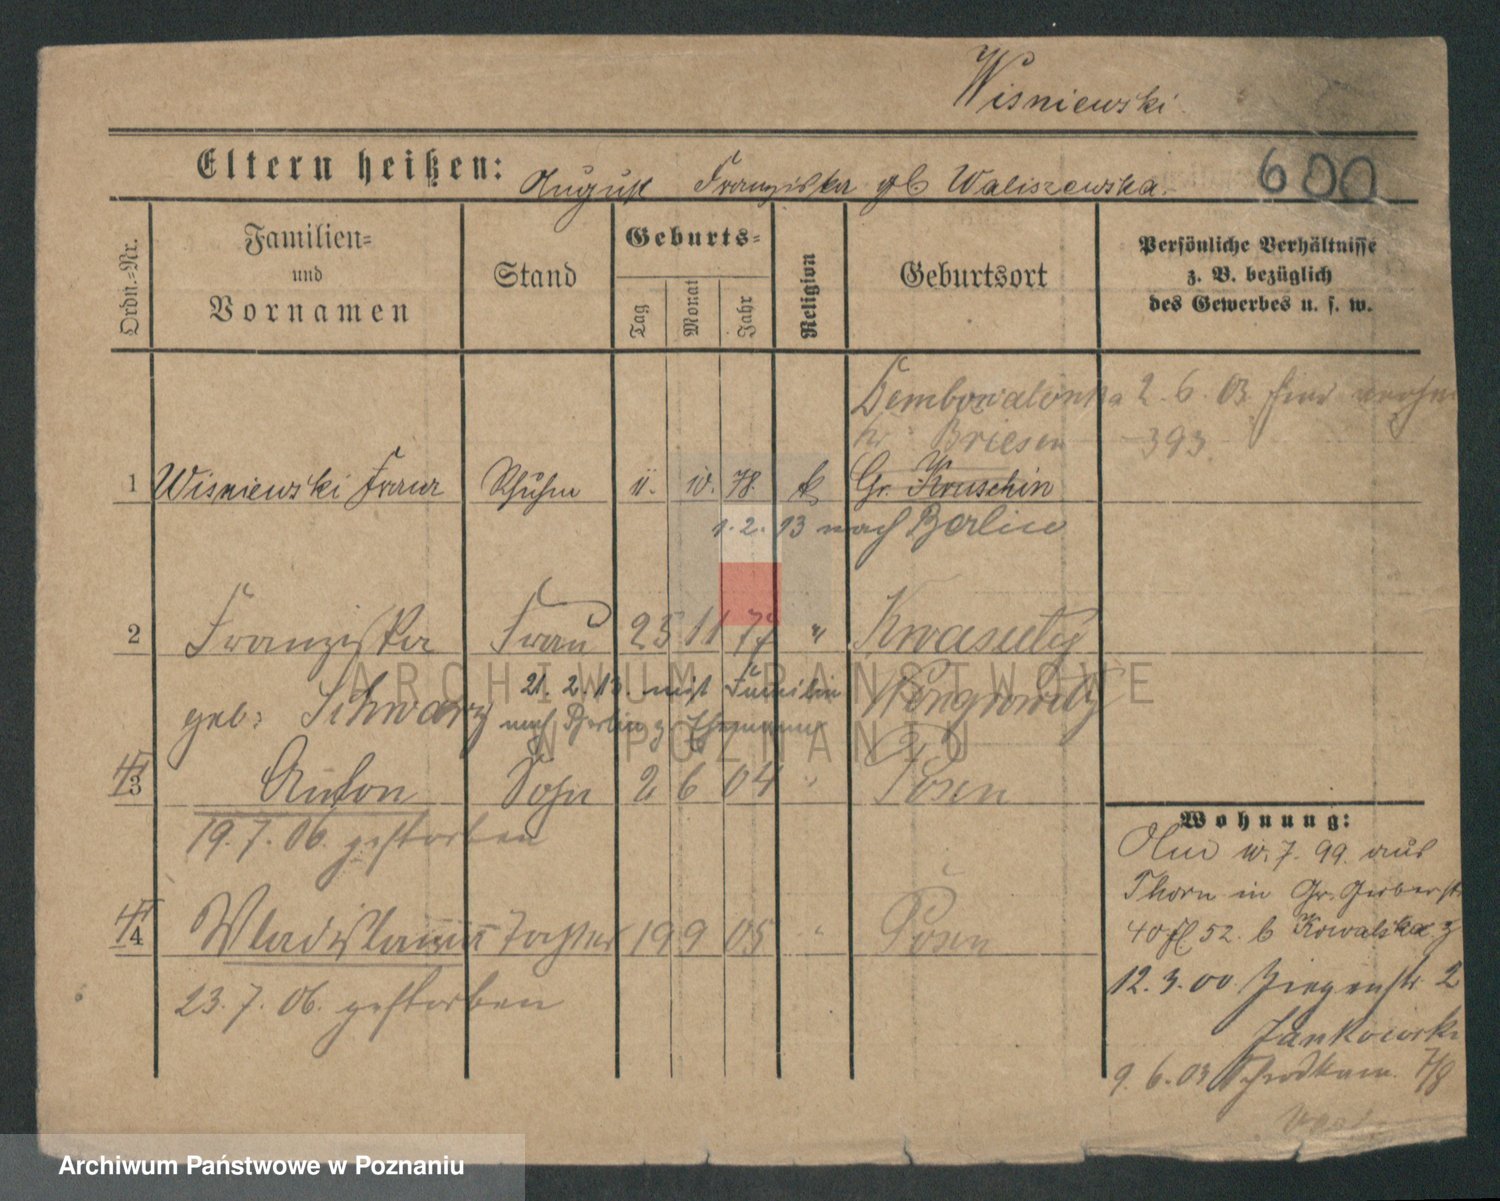 Wisniewski
Eltern heißen: August Franziska gb Waliszewska
600
Ordn.-Nr.
Familien-
und
Vornamen
Stand
Geburts-
Tag
Monat
Jahr
Religion
Geburtsort
Persönliche Verhältnisse
z. B. bezüglich
des Gewerbes u. s. w.
Dembowalonka 2. 6. 03
Kr. Briesen 393.
1 Wisniewski Franz Schuhm 78. k Gr. Kruschin
1. 2. 13 nach Berlin
2 Franziska Frau 25 11 77 "
geb: Schwarz 21. 2. 13. mit Familie Wongrowitz
nach Berlin z. Ehemann
3 Anton Sohn 2 6 04 " Posen
19. 7. 06. gestorben
4 Wladislawa Tochter 19 9 05 " Posen
23. 7. 06. gestorben
Wohnung:
7. 99. aus
Thorn in Gr. Gerberstr
40 52. b Kowalska
12. 3. 00 Ziegenstr. 2
Jankowski
9. 6. 03 7/8
ARCHIWUM PAŃSTWOWE
W POZNANIU
Archiwum Państwowe w Poznaniu